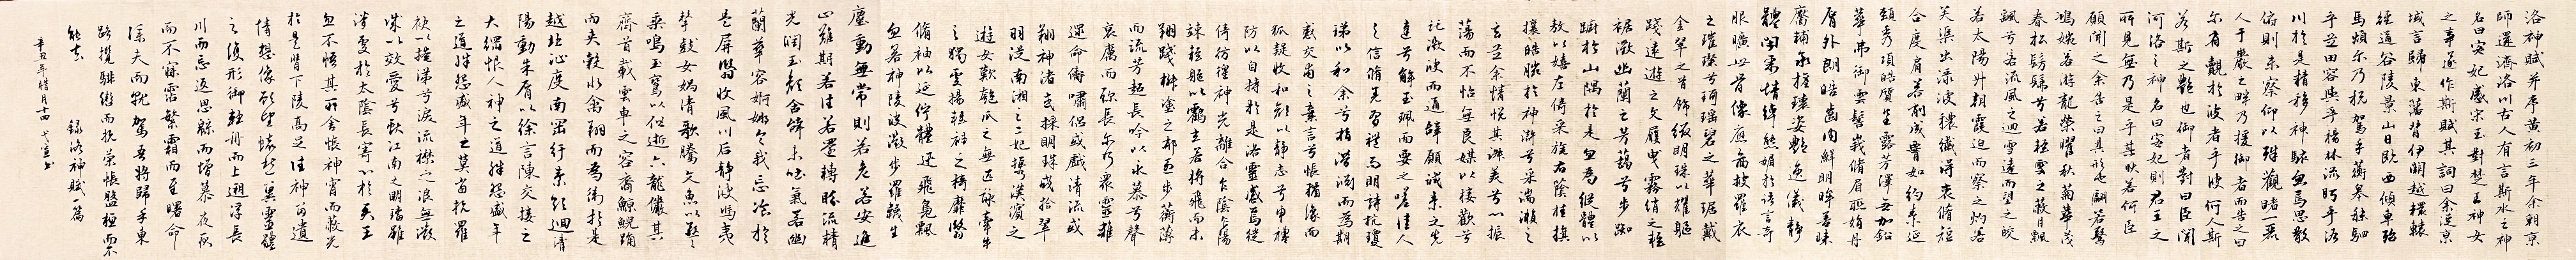 洛神賦并序黃初三年余朝京
師還濟洛川古人有言斯水之神
名曰宓妃感宋玉對楚王神女
之事遂作斯賦其詞曰余從京
域言歸東藩背伊闕越轘轅
經通谷陵景山日既西傾車殆
馬煩尔乃税駕乎蘅皋秣駟
乎芝田容與乎楊林流眄乎洛
川於是精移神駭忽焉思散
俯則未察仰以殊觀睹一麗
人于巖之畔乃援御者而告之曰
尔有覿於彼者乎彼何人斯
若斯之艷也御者對曰臣聞
河洛之神名曰宓妃則君王之
所見無乃是乎其狀若何臣
願聞之余告之曰其形也翩若驚
鴻婉若游龍榮曜秋菊華茂
春松髣髴兮若輕雲之蔽月飄
飄兮若流風之迴雪遠而望之皎
若太陽升朝霞迫而察之灼若
芙渠出淥波穠纖得衷脩短
合度肩若削成腰如約素延
頸秀項皓質呈露芳澤無加鉛
華弗御雲髻峩峩脩眉聯娟丹
脣外朗皓齒內鮮明眸善睞
靨輔承權瓌姿艷逸儀靜
體閑柔情綽態媚於語言奇
服曠世骨像應圖披羅衣
之璀璨兮珥瑤碧之華琚戴
金翠之首飾綴明珠以耀軀
踐遠遊之文履曳霧綃之輕
裾微幽蘭之芳藹兮步踟
躕於山隅於是忽焉縱體以
遨以嬉左倚采旄右蔭桂旗
攘皓腕於神滸兮采湍瀨之
玄芝余情悅其淑美兮心振
蕩而不怡無良媒以接歡兮
託微波而通辭願誠素之先
達兮解玉珮而要之嗟佳人
之信脩羌習禮而明詩抗瓊
珶以和余兮指潛淵而為期
感交甫之棄言兮悵猶像而
狐疑收和顏以靜志兮申禮
防以自持於是洛靈感焉徙
倚彷徨神光離合乍陰乍陽
竦輕軀以鶴立若將飛而未
翔踐椒塗之郁烈步蘅薄
而流芳超長吟以永慕兮聲
哀厲而彌長尔乃眾靈雜
遝命儔嘯侶或戲清流或
翔神渚或採明珠或拾翠
羽從南湘之二妃攜漢濱之
遊女歎匏瓜之無匹詠牽牛
之獨處揚輕袿之猗靡翳
脩袖以延佇體迅飛鳧飄
忽若神陵波微步羅襪生
塵動無常則若危若安進
止難期若往若還轉眄流精
光潤玉顏含辭未吐氣若幽
蘭華容婀娜令我忘飡於
是屏翳收風川后靜波馮夷
擊鼓女媧清歌騰文魚以警
乘鳴玉鸞以偕逝六龍儼其
齊首載雲車之容裔鯨鯢踊
而夾轂水禽翔而為衛於是
越北沚度南岡紆素領迴清
陽動朱脣以徐言陳交接之
大綱恨人神之道殊怨盛年
之道殊怨盛年之莫當抗羅
袂以掩涕兮淚流襟之浪無微
誠以效愛兮獻江南之明璫雖
潛處於太陰長寄心於君王
忽不悟其所舍悵神宵而蔽光
於是背下陵高足往神留遺
情想像顧望懷愁冀靈體
之復形御輕舟而上遡浮長
川而忘返思綿而增慕夜耿
而不寐霑繁霜而至曙命
僕夫而就駕吾將歸乎東
路攬騑轡而抗策悵盤桓而不
能去 錄洛神賦一篇
辛丑年腊月廿四